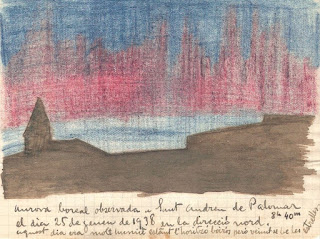 Aurora boreal observada a Sant Andreu de Palomar
el dia 25 de gener de 1938 en la direcció nord. 8h 40m
aquest dia era molt estant l'horitzó però de les estrelles